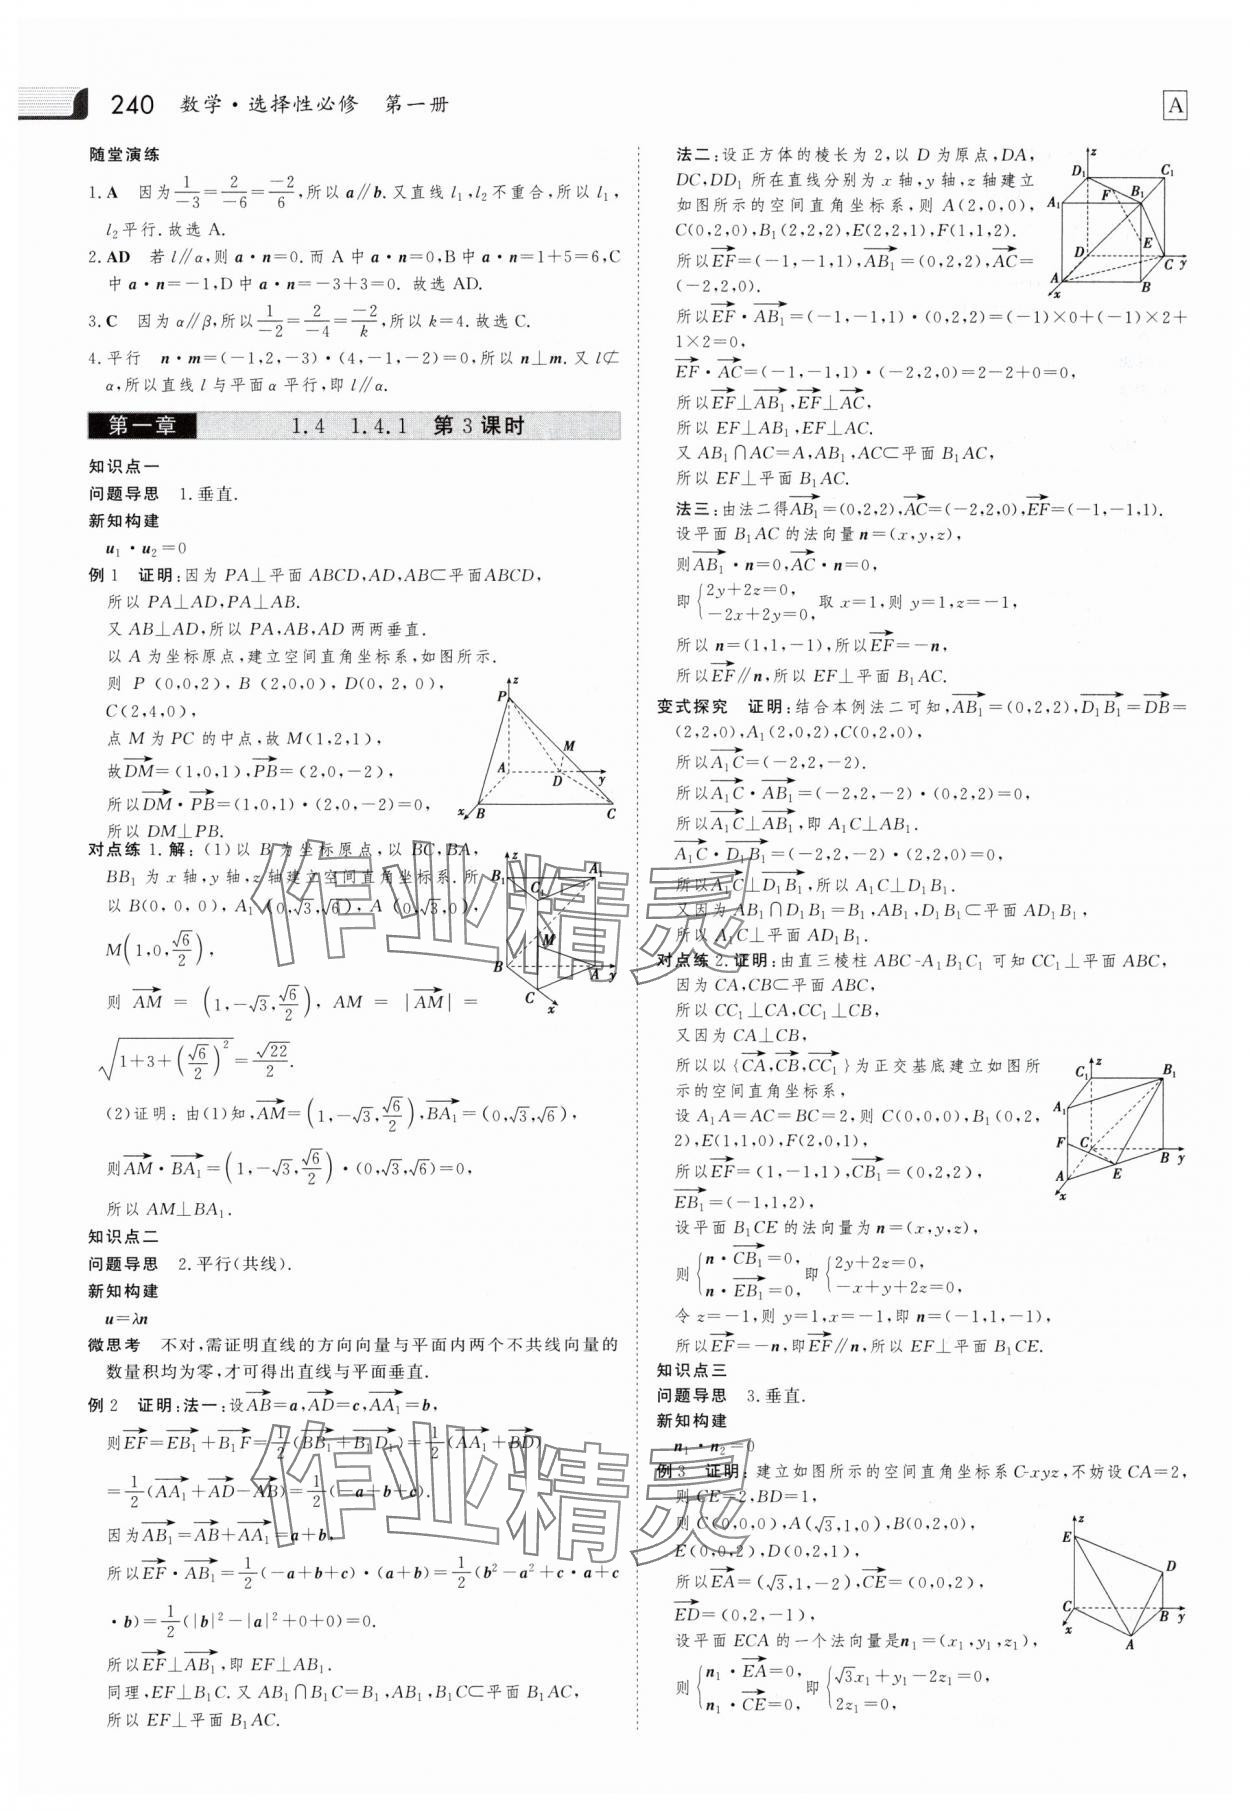 240 数学·选择性必修 第一册
A
随堂演练
1. A 因为1/-3=2/-6=-2/6,所以a∥b.又直线l₁,l₂不重合,所以l₁,
l₂平行.故选A.
2. AD 若l∥α,则a·n=0.而A中a·n=0,B中a·n=1+5=6,C
中a·n=-1,D中a·n=-3+3=0. 故选AD.
3. C 因为α∥β,所以1/-2=2/-4=-2/k,所以k=4.故选C.
4. 平行 n·m=(-1,2,-3)·(4,-1,-2)=0,所以n⊥m.又l⊄
α,所以直线l与平面α平行,即l∥α.
第一章 1.4 1.4.1 第3课时
知识点一
问题导思 1.垂直.
新知构建
u₁·u₂=0
例1 证明:因为PA⊥平面ABCD,AD,AB⊂平面ABCD,
所以PA⊥AD,PA⊥AB.
又AB⊥AD,所以PA,AB,AD两两垂直.
以A为坐标原点,建立空间直角坐标系,如图所示.
则P(0,0,2),B(2,0,0),D(0,2,0),
C(2,4,0),
点M为PC的中点,故M(1,2,1),
故DM→=(1,0,1),PB→=(2,0,-2),
所以DM→·PB→=(1,0,1)·(2,0,-2)=0,
所以DM⊥PB.
z
P
M
A
D
y
x
B
C
对点练1.解:(1)以B为坐标原点,以BC,BA,
BB₁为x轴,y轴,z轴建立空间直角坐标系.所
以B(0,0,0),A₁(0,√3,√6),A(0,√3,0),
M(1,0,√6/2),
则AM→=(1,-√3,√6/2),AM=|AM→|=
√(1+3+(√6/2)²)=√22/2.
z
B₁
A₁
C₁
M
B
A
y
C
x
(2)证明:由(1)知,AM→=(1,-√3,√6/2),BA₁→=(0,√3,√6),
则AM→·BA₁→=(1,-√3,√6/2)·(0,√3,√6)=0,
所以AM⊥BA₁.
知识点二
问题导思 2.平行(共线).
新知构建
u=λn
微思考 不对,需证明直线的方向向量与平面内两个不共线向量的
数量积均为零,才可得出直线与平面垂直.
例2 证明:法一:设AB→=a,AD→=c,AA₁→=b,
则EF→=EB₁→+B₁F→=1/2(BB₁→+B₁D₁→)=1/2(AA₁→+BD→)
=1/2(AA₁→+AD→-AB→)=1/2(-a+b+c).
因为AB₁→=AB→+AA₁→=a+b,
所以EF→·AB₁→=1/2(-a+b+c)·(a+b)=1/2(b²-a²+c·a+c
·b)=1/2(|b|²-|a|²+0+0)=0.
所以EF→⊥AB₁→,即EF⊥AB₁.
同理,EF⊥B₁C.又AB₁∩B₁C=B₁,AB₁,B₁C⊂平面B₁AC,
所以EF⊥平面B₁AC.
法二:设正方体的棱长为2,以D为原点,DA,
DC,DD₁所在直线分别为x轴,y轴,z轴建立
如图所示的空间直角坐标系,则A(2,0,0),
C(0,2,0),B₁(2,2,2),E(2,2,1),F(1,1,2).
所以EF→=(-1,-1,1),AB₁→=(0,2,2),AC→=
(-2,2,0).
z
D₁
C₁
F
A₁
B₁
E
D
C
y
A
B
x
所以EF→·AB₁→=(-1,-1,1)·(0,2,2)=(-1)×0+(-1)×2+
1×2=0,
EF→·AC→=(-1,-1,1)·(-2,2,0)=2-2+0=0,
所以EF→⊥AB₁→,EF→⊥AC→,
所以EF⊥AB₁,EF⊥AC.
又AB₁∩AC=A,AB₁,AC⊂平面B₁AC,
所以EF⊥平面B₁AC.
法三:由法二得AB₁→=(0,2,2),AC→=(-2,2,0),EF→=(-1,-1,1).
设平面B₁AC的法向量n=(x,y,z),
则AB₁→·n=0,AC→·n=0,
即{2y+2z=0,
-2x+2y=0, 取x=1,则y=1,z=-1,
所以n=(1,1,-1),所以EF→=-n,
所以EF→∥n,所以EF⊥平面B₁AC.
变式探究 证明:结合本例法二可知,AB₁→=(0,2,2),D₁B₁→=DB→=
(2,2,0),A₁(2,0,2),C(0,2,0),
所以A₁C→=(-2,2,-2).
所以A₁C→·AB₁→=(-2,2,-2)·(0,2,2)=0,
所以A₁C→⊥AB₁→,即A₁C⊥AB₁.
A₁C→·D₁B₁→=(-2,2,-2)·(2,2,0)=0,
所以A₁C→⊥D₁B₁→,所以A₁C⊥D₁B₁.
又因为AB₁∩D₁B₁=B₁,AB₁,D₁B₁⊂平面AD₁B₁,
所以A₁C⊥平面AD₁B₁.
对点练2.证明:由直三棱柱ABC-A₁B₁C₁可知CC₁⊥平面ABC,
因为CA,CB⊂平面ABC,
所以CC₁⊥CA,CC₁⊥CB,
又因为CA⊥CB,
所以以{CA→,CB→,CC₁→}为正交基底建立如图所
示的空间直角坐标系,
设A₁A=AC=BC=2,则C(0,0,0),B₁(0,2,
2),E(1,1,0),F(2,0,1),
所以EF→=(1,-1,1),CB₁→=(0,2,2),
EB₁→=(-1,1,2),
z
C₁
B₁
A₁
F
C
B
y
A
E
x
设平面B₁CE的法向量为n=(x,y,z),
则{n·CB₁→=0,
n·EB₁→=0, 即{2y+2z=0,
-x+y+2z=0,
令z=-1,则y=1,x=-1,即n=(-1,1,-1),
所以EF→=-n,即EF→∥n,所以EF⊥平面B₁CE.
知识点三
问题导思 3.垂直.
新知构建
n₁·n₂=0
例3 证明:建立如图所示的空间直角坐标系C-xyz,不妨设CA=2,
则CE=2,BD=1,
则C(0,0,0),A(√3,1,0),B(0,2,0),
E(0,0,2),D(0,2,1),
所以EA→=(√3,1,-2),CE→=(0,0,2),
ED→=(0,2,-1),
设平面ECA的一个法向量是n₁=(x₁,y₁,z₁),
则{n₁·EA→=0,
n₁·CE→=0, 即{√3x₁+y₁-2z₁=0,
2z₁=0,
z
E
D
C
B
y
x
A
作业精灵
作业精灵